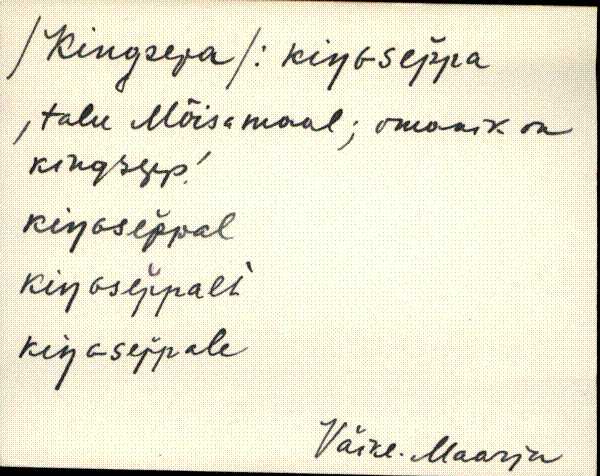 /Kingsepa/: kiŋG-sep̆pa
, talu Mõisamaal; omanik on
kingsepp.'
kiŋGsep̆pal
kiŋGsep̆palt
kiŋG-sep̆pale
Väike-Maarja